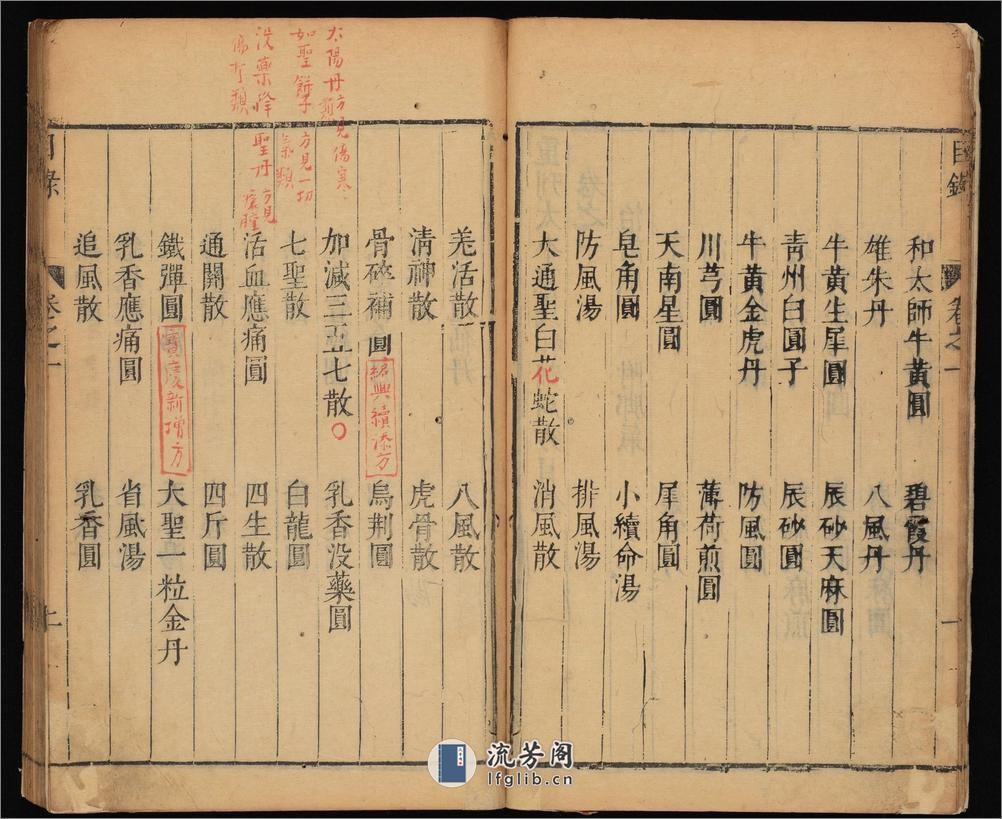 目錄
卷之一
一
和太師牛黃圓 碧霞丹
雄朱丹 八風丹
牛黃生犀圓 辰砂天麻圓
靑州白圓子 辰砂圓
牛黃金虎丹 防風圓
川芎圓 薄荷煎圓
天南星圓 犀角圓
皂角圓 小續命湯
防風湯 排風湯
大通聖白花蛇散 消風散
羌活散 八風散
淸神散 虎骨散
骨碎補圓 紹興續添方 烏荆圓
加減三五七散 乳香没藥圓
七聖散 白龍圓
活血應痛圓 四生散
通關散 四斤圓
鐵彈圓 寶慶新增方 大聖一粒金丹
乳香應痛圓 省風湯
追風散 乳香圓
目錄
卷之一
太陽丹方見傷寒類
如聖餅子方見一切氣類
没藥降聖丹方見瘡腫傷折類
流芳阁
lfglib.cn